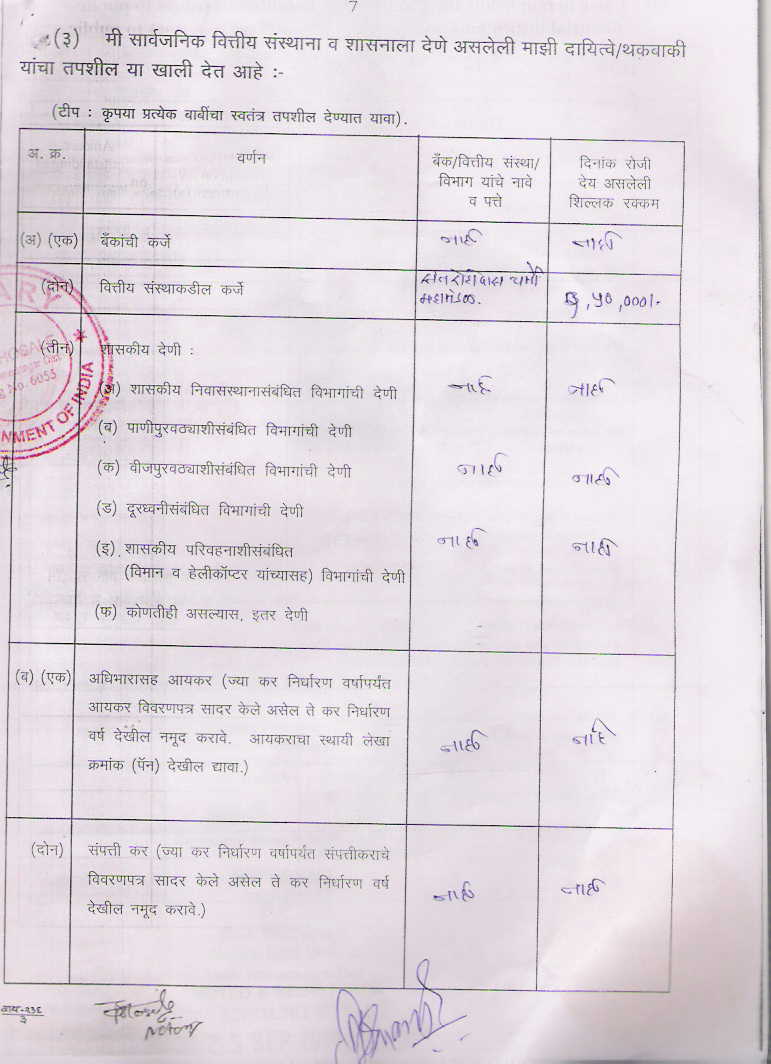 7
(३) मी सार्वजनिक वित्तीय संस्थाना व शासनाला देणे असलेली माझी दायित्वे/थकवाकी
यांचा तपशील या खाली देत आहे :-
(टीप : कृपया प्रत्येक बाबींचा स्वतंत्र तपशील देण्यात यावा).
अ. क्र.
वर्णन
बँक/वित्तीय संस्था/
विभाग यांचे नावे
व पत्ते
दिनांक रोजी
देय असलेली
शिल्लक रक्कम
(अ) (एक) बँकांची कर्जे नाही नाही
(दोन) वित्तीय संस्थाकडील कर्जे
महामंडळ.
५०,०००/-
(तीन) शासकीय देणी :
(अ) शासकीय निवासस्थानासंबंधित विभागांची देणी नाही नाही
(ब) पाणीपुरवठ्याशीसंबंधित विभागांची देणी
(क) वीजपुरवठ्याशीसंबंधित विभागांची देणी नाही नाही
(ड) दूरध्वनीसंबंधित विभागांची देणी
(इ) शासकीय परिवहनाशीसंबंधित नाही नाही
(विमान व हेलीकॉप्टर यांच्यासह) विभागांची देणी
(फ) कोणतीही असल्यास, इतर देणी
(ब) (एक) अधिभारासह आयकर (ज्या कर निर्धारण वर्षापर्यंत
आयकर विवरणपत्र सादर केले असेल ते कर निर्धारण
वर्ष देखील नमूद करावे. आयकराचा स्थायी लेखा नाही नाही
क्रमांक (पॅन) देखील द्यावा.)
(दोन) संपत्ती कर (ज्या कर निर्धारण वर्षापर्यंत संपत्तीकराचे
विवरणपत्र सादर केले असेल ते कर निर्धारण वर्ष नाही नाही
देखील नमूद करावे.)
No. 6055
NMENT OF INDIA
Notory